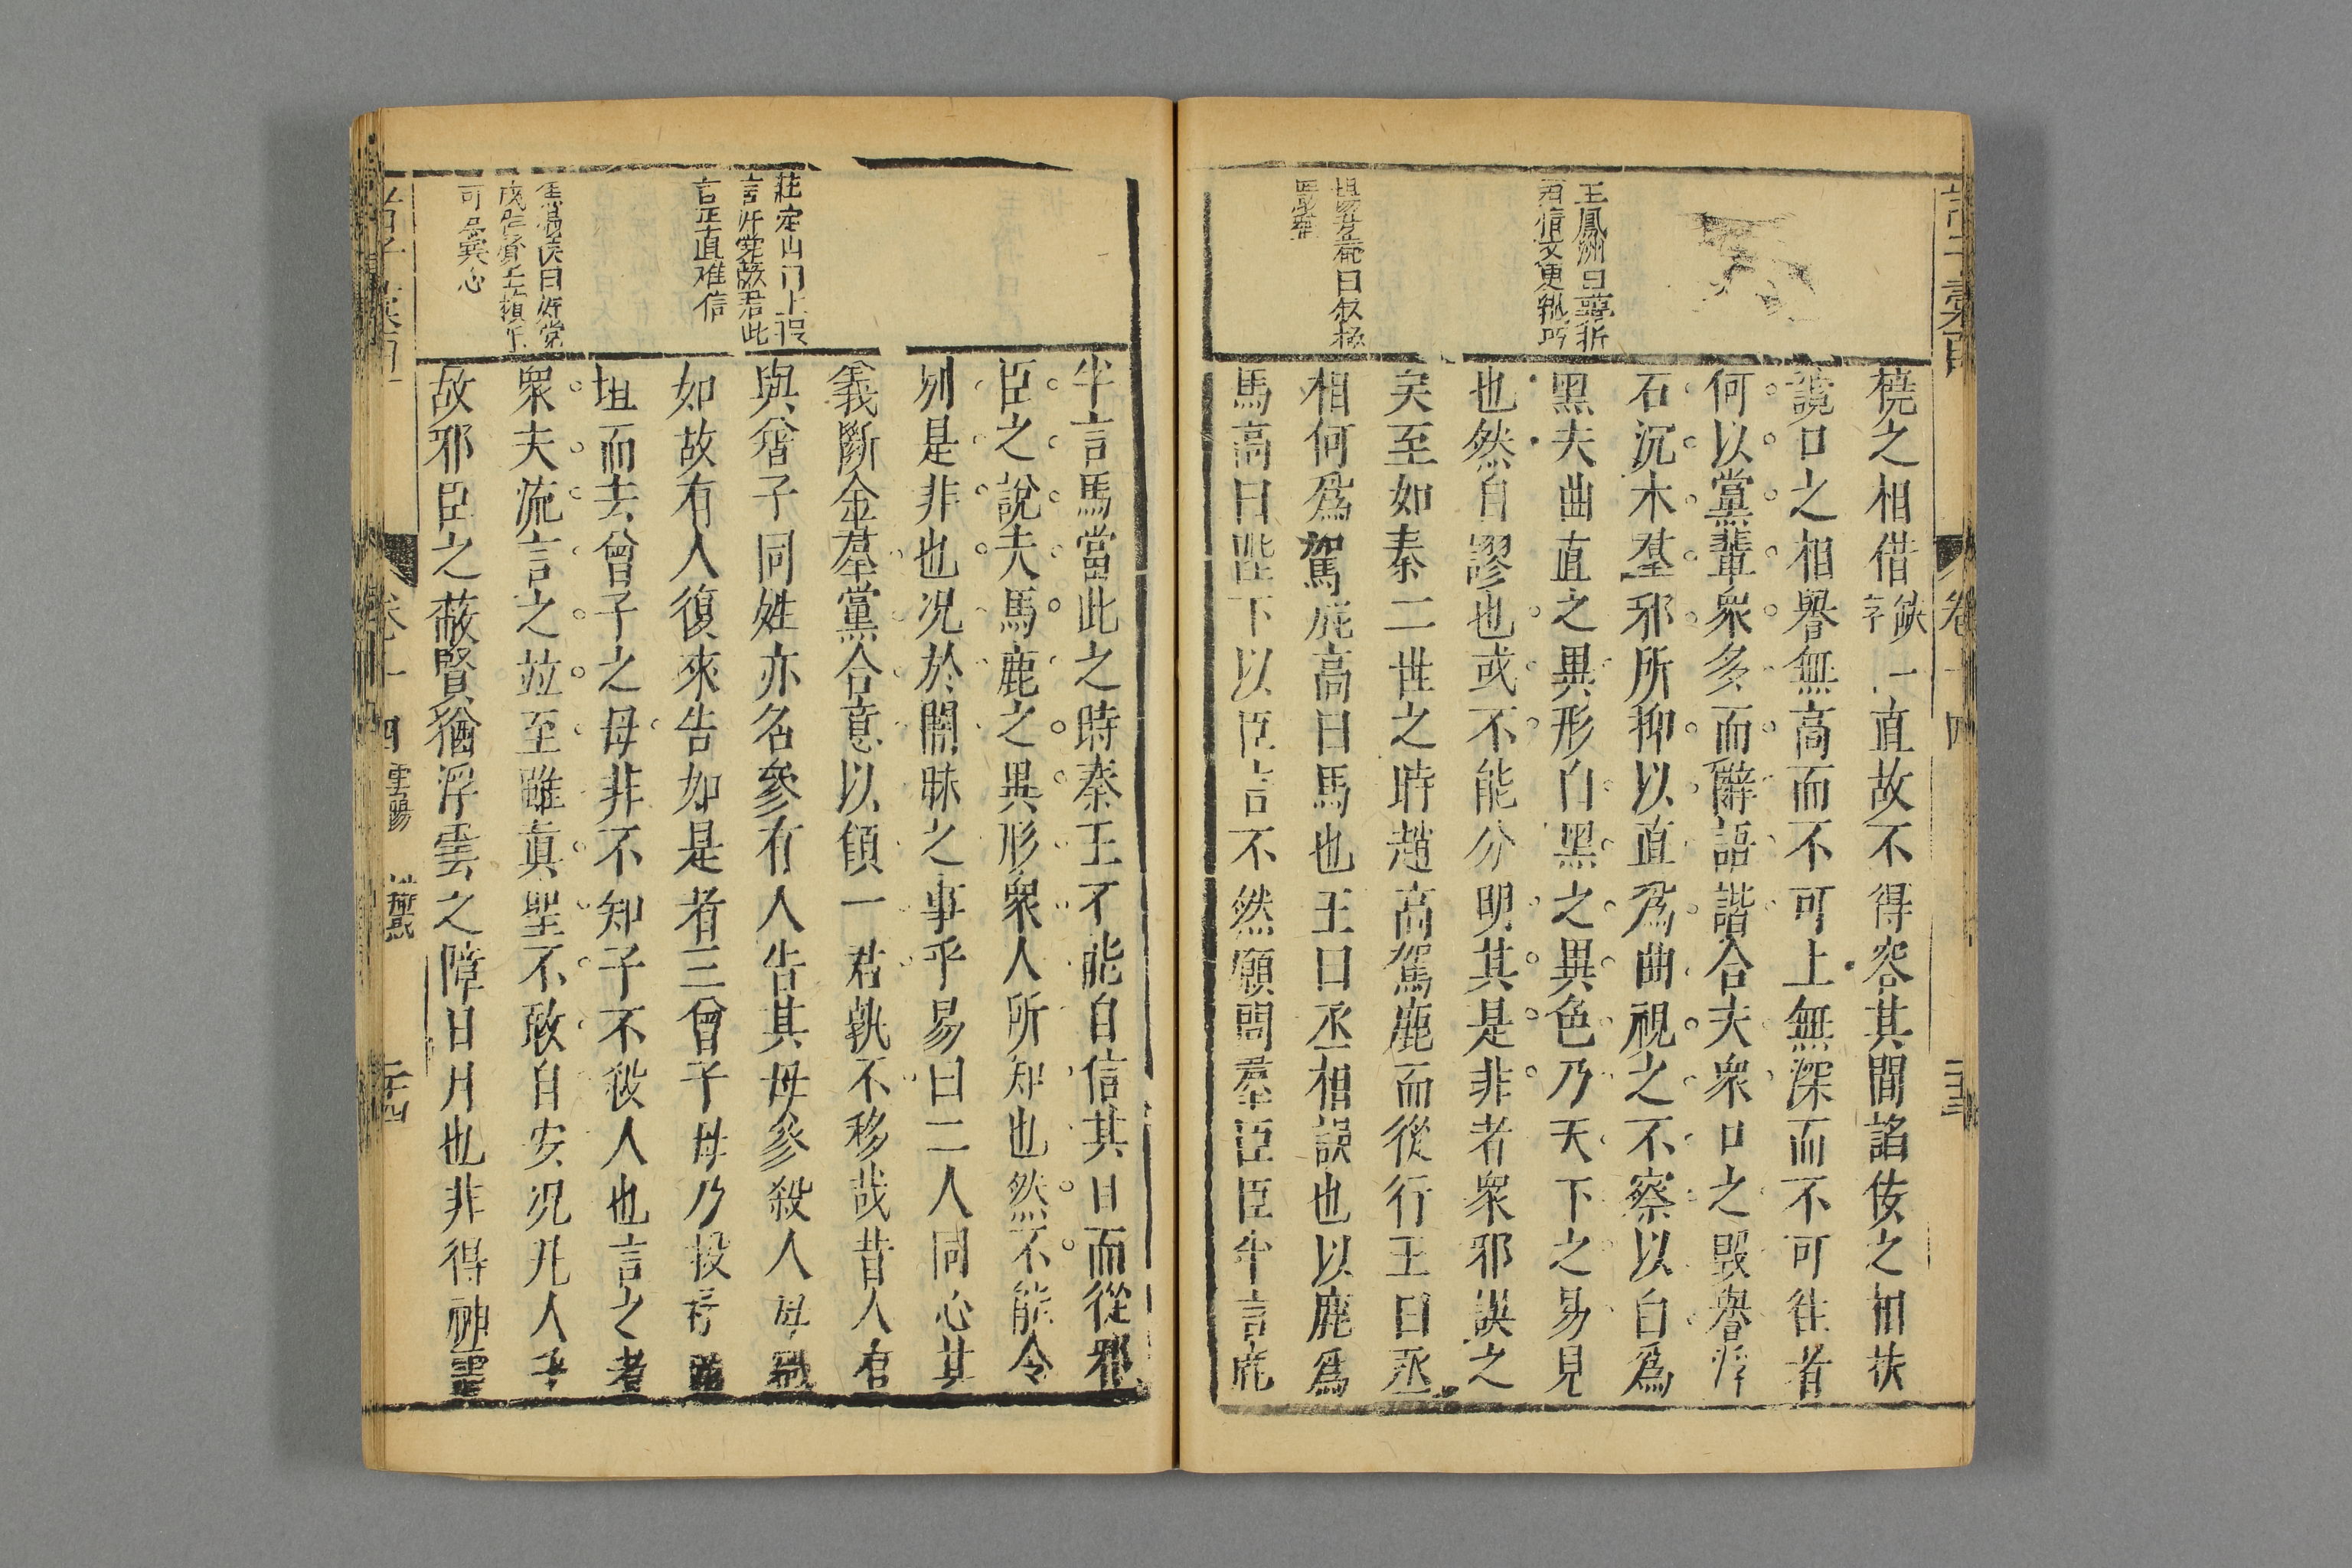 王鳳洲曰
橈之相借缺字一直故不得容其間諂佞之相扶
讒口之相譽無高而不可上無深而不可往者
何以黨輩衆多而辭語諧合夫衆口之毀譽浮
石沉木羣邪所抑以直爲曲視之不察以白爲
黑夫曲直之異形白黑之異色乃天下之易見
也然自謬也或不能分明其是非者衆邪誤之
矣至如秦二世之時趙高駕鹿而從行王曰丞
相何爲駕鹿高曰馬也王曰丞相誤也以鹿爲
馬高曰陛下以臣言不然願問羣臣臣半言鹿
卷十四
莊定山
言奸黨蔽君此
言正直難信
半言馬當此之時秦王不能自信其目而從邪
臣之說夫馬鹿之異形衆人所知也然不能令
別是非也况於闇昧之事乎易曰二人同心其
義斷金羣黨合意以傾一君孰不移哉昔人有
與曾子同姓亦名參有人告其母參殺人母
如故有人復來告如是者三曾子母乃投
垣而去曾子之母非不知子不殺人也言之者
衆夫流言之並至雖眞聖不敢自安况凡人乎
故邪臣之蔽賢猶浮雲之障日月也非得神靈
卷十四
雲陽